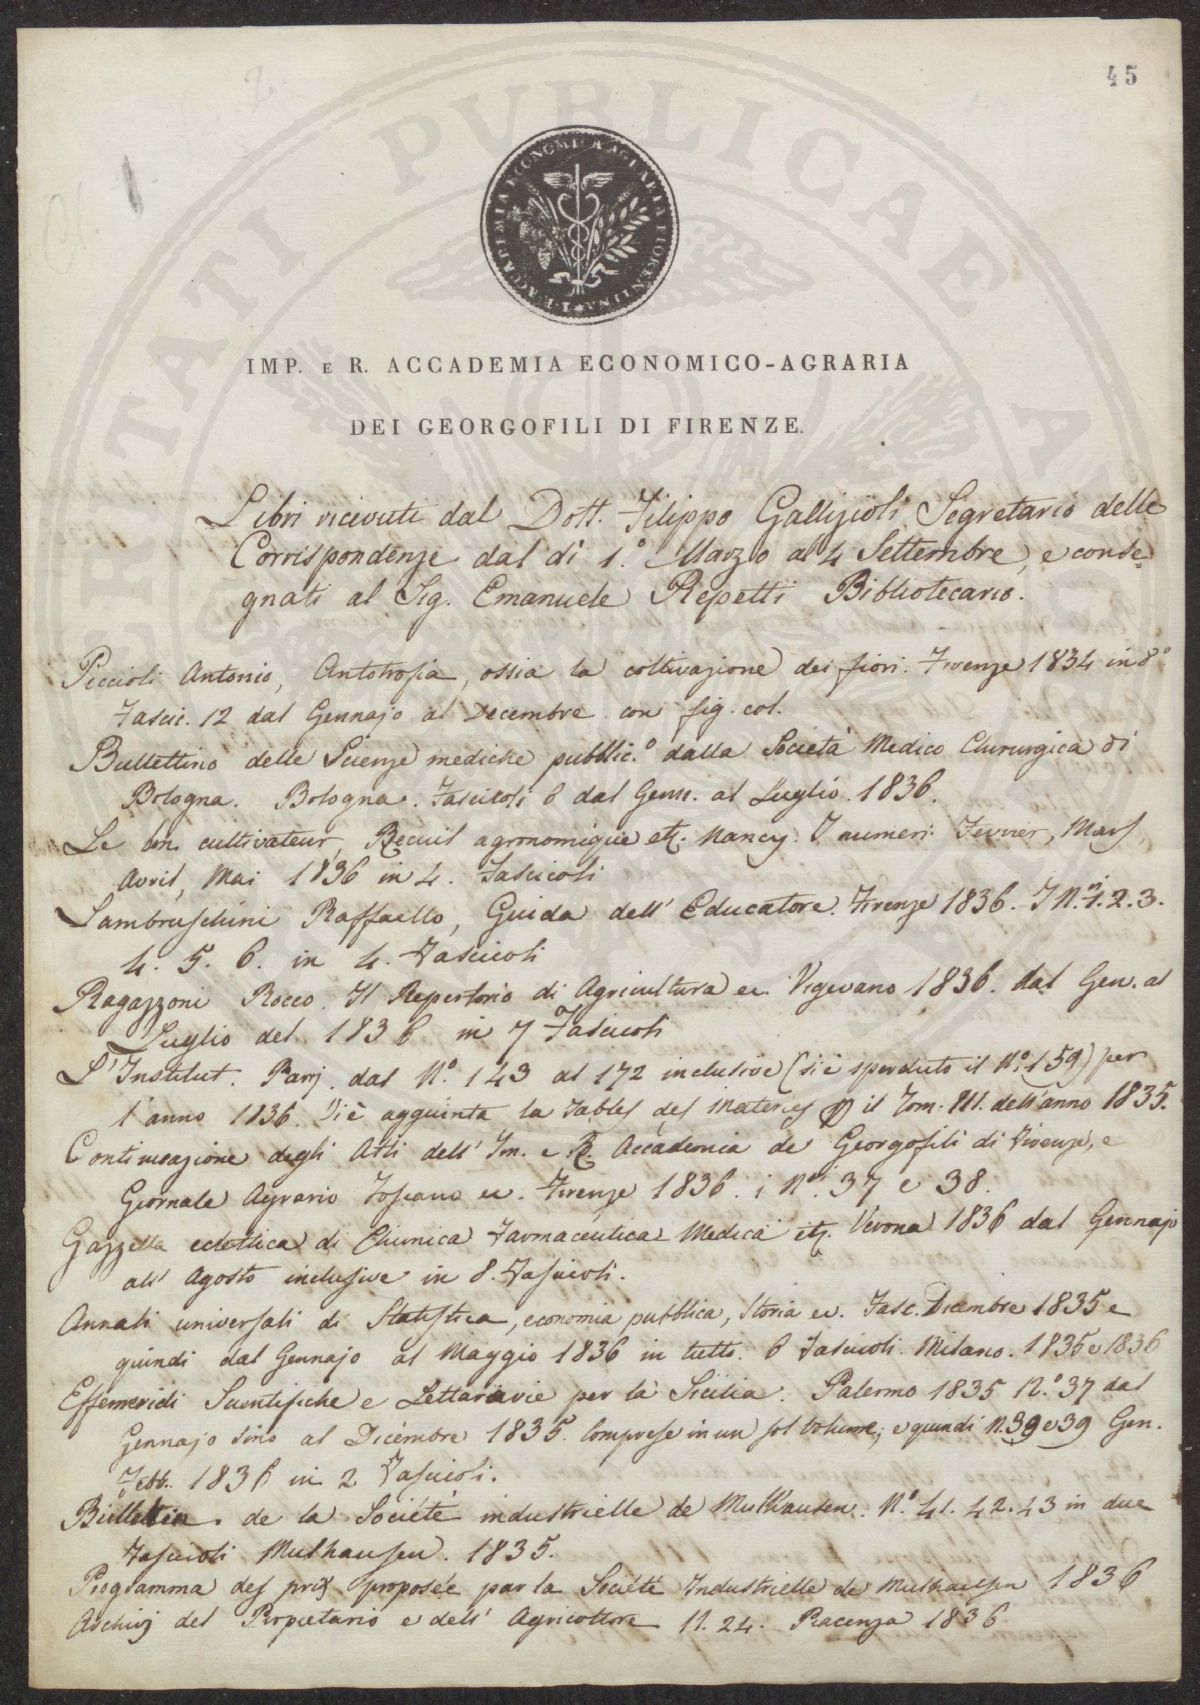 45
I. E R. ACCADEMIA ECONOMICA AGRARIA FIORENTINA
IMP. E R. ACCADEMIA ECONOMICO-AGRARIA
DEI GEORGOFILI DI FIRENZE.
Libri ricevuti dal Dott. Filippo Gallizioli Segretario delle
Corrispondenze dal dì 1.° Marzo al 4 Settembre, e conse-
gnati al Sig. Emanuele Repetti Bibliotecario.
Piccioli Antonio, Antotrofia, ossia la coltivazione dei fiori. Firenze 1834 in 8°
Fascic. 12 dal Gennajo al Decembre con fig. col.
Bullettino delle Scienze mediche pubblic.° dalla Società Medico Chirurgica di
Bologna. Bologna. Fascicoli 6 dal Genn. al Luglio. 1836.
Le bon cultivateur, Recuil agronomique etc. Nancy. I numeri Fevrier, Mars,
Avril, Mai 1836 in 4. Fascicoli
Lambruschini Raffaello, Guida dell' Educatore. Firenze 1836. I N.i 1. 2. 3.
4. 5. 6. in 4. Fascicoli
Ragazzoni Rocco. Il Repertorio di Agricultura ec. Vigevano 1836. dal Gen. al
Luglio del 1836 in 7 Fascicoli
L'Institut. Paris. dal N.° 143 al 172 inclusive (si è sperduto il N.° 159) per
l'anno 1836. Vi è aggiunta la Tables des Materies il Tom. III. dell'anno 1835.
Continuazione degli Atti dell' Im. e R. Accademia de Georgofili di Firenze, e
Giornale Agrario Toscano ec. Firenze 1836. i N.i 37 e 38.
Gazzella eclettica di Chimica Farmaceutica Medica etc. Verona 1836 dal Gennajo
all' Agosto inclusive in 8. Fascicoli.
Annali universali di Statistica, economia pubblica, Storia ec. Fasc. Dicembre 1835 e
quindi dal Gennajo al Maggio 1836 in tutto. 6 Fascicoli. Milano. 1835 e 1836
Effemeridi Scientifiche e Letterarie per la Sicilia. Palermo 1835 N.° 37 dal
Gennajo sino al Dicembre 1835. Comprese in un sol volume; e quindi N. 38 e 39 Gen.
Febb. 1836 in 2 Fascicoli.
Bulletin de la Société industrielle de Mulhausen. N.° 41. 42. 43 in due
Fascicoli Mulhausen. 1835.
Programma des prix proposée par la Société Industrielle de Mulhausen 1836
Archivj del Propietario e dell' Agricoltore N. 24. Piacenza 1836